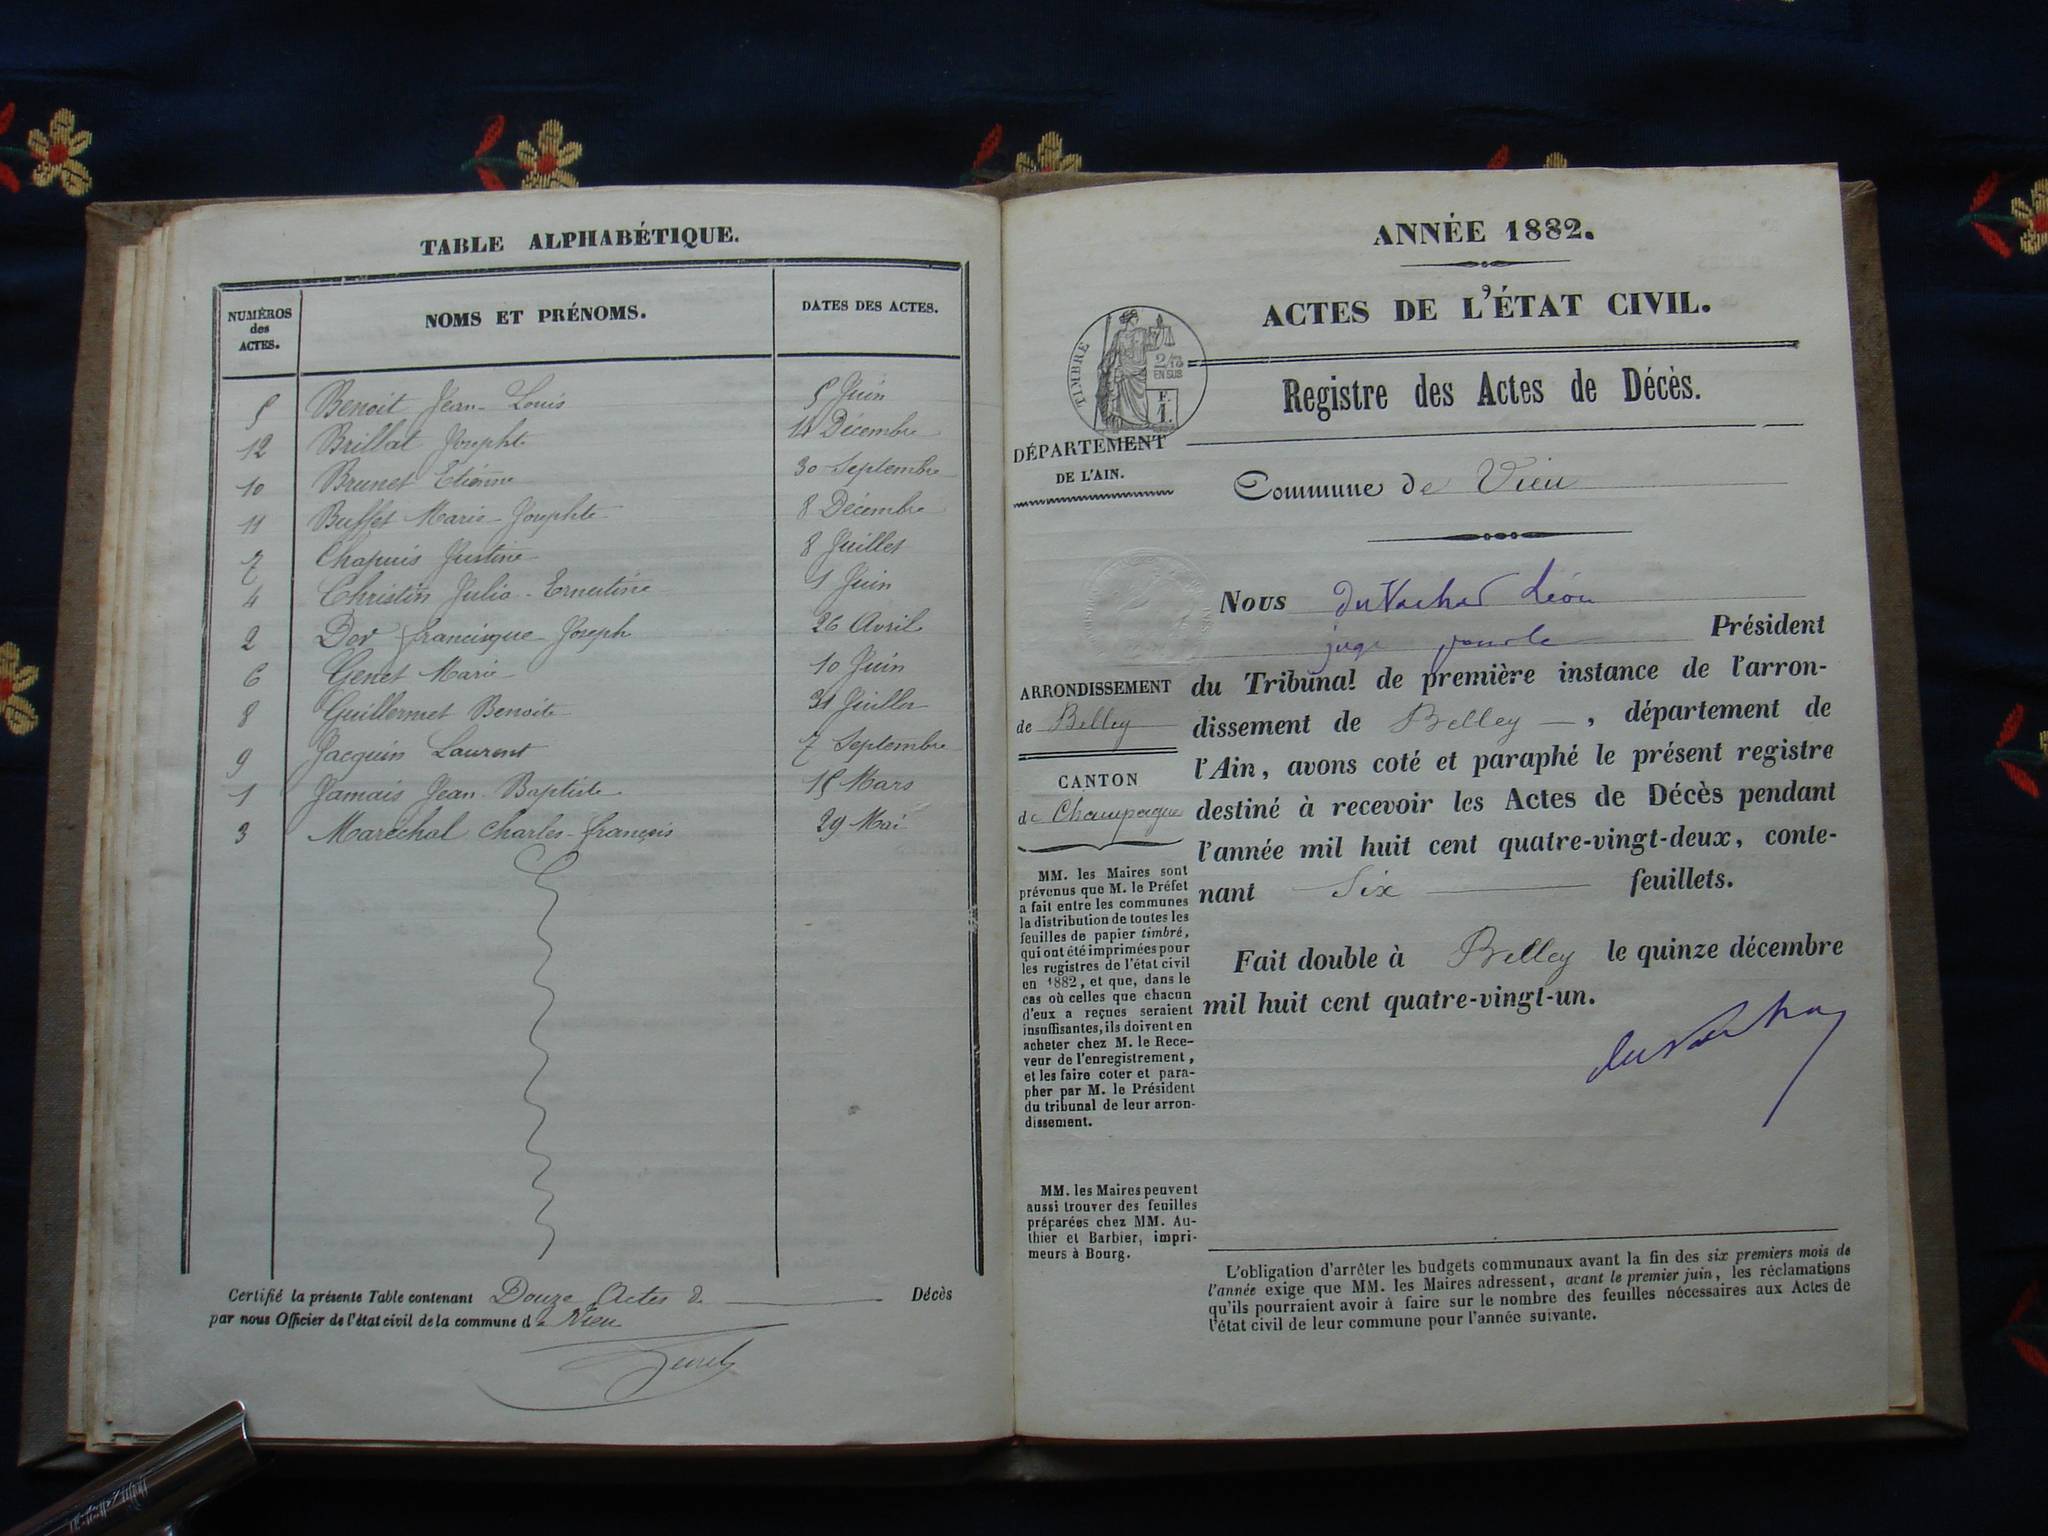 TABLE ALPHABÉTIQUE.
NUMÉROS des ACTES. NOMS ET PRÉNOMS. DATES DES ACTES.
5 Benoit Jean-Louis 5 Juin
12 Brillat Josephte 14 Décembre
10 Brunet Etienne 30 Septembre
11 Buffet Marie-Josephte 8 Décembre
7 Chapuis Justine 8 Juillet
4 Christin Julie-Ernestine 1 Juin
2 Dor francisque-Joseph 26 Avril
6 Genet Marie 10 Juin
8 Guillermet Benoite 31 Juillet
9 Jacquin Laurent 7 Septembre
1 Jamais Jean-Baptiste 15 Mars
3 Maréchal Charles-françois 29 Mai
Certifié la présente Table contenant Douze Actes de Décès
par nous Officier de l'état civil de la commune de Vieu
ANNÉE 1882.
ACTES DE L'ÉTAT CIVIL.
TIMBRE
2/10
EN SUS
F.
1.
Registre des Actes de Décès.
DÉPARTEMENT
DE L'AIN.
Commune de Vieu
Nous Léon
juge Président
du Tribunal de première instance de l'arron-
dissement de Belley, département de
l'Ain, avons coté et paraphé le présent registre
destiné à recevoir les Actes de Décès pendant
l'année mil huit cent quatre-vingt-deux, conte-
nant Six feuillets.
Fait double à Belley le quinze décembre
mil huit cent quatre-vingt-un.
ARRONDISSEMENT
de Belley
CANTON
de Champagne
MM. les Maires sont
prévenus que M. le Préfet
a fait entre les communes
la distribution de toutes les
feuilles de papier timbré,
qui ont été imprimées pour
les registres de l'état civil
en 1882, et que, dans le
cas où celles que chacun
d'eux a reçues seraient
insuffisantes, ils doivent en
acheter chez M. le Rece-
veur de l'enregistrement,
et les faire coter et para-
pher par M. le Président
du tribunal de leur arron-
dissement.
MM. les Maires peuvent
aussi trouver des feuilles
préparées chez MM. Au-
thier et Barbier, impri-
meurs à Bourg.
L'obligation d'arrêter les budgets communaux avant la fin des six premiers mois de
l'année exige que MM. les Maires adressent, avant le premier juin, les réclamations
qu'ils pourraient avoir à faire sur le nombre des feuilles nécessaires aux Actes de
l'état civil de leur commune pour l'année suivante.